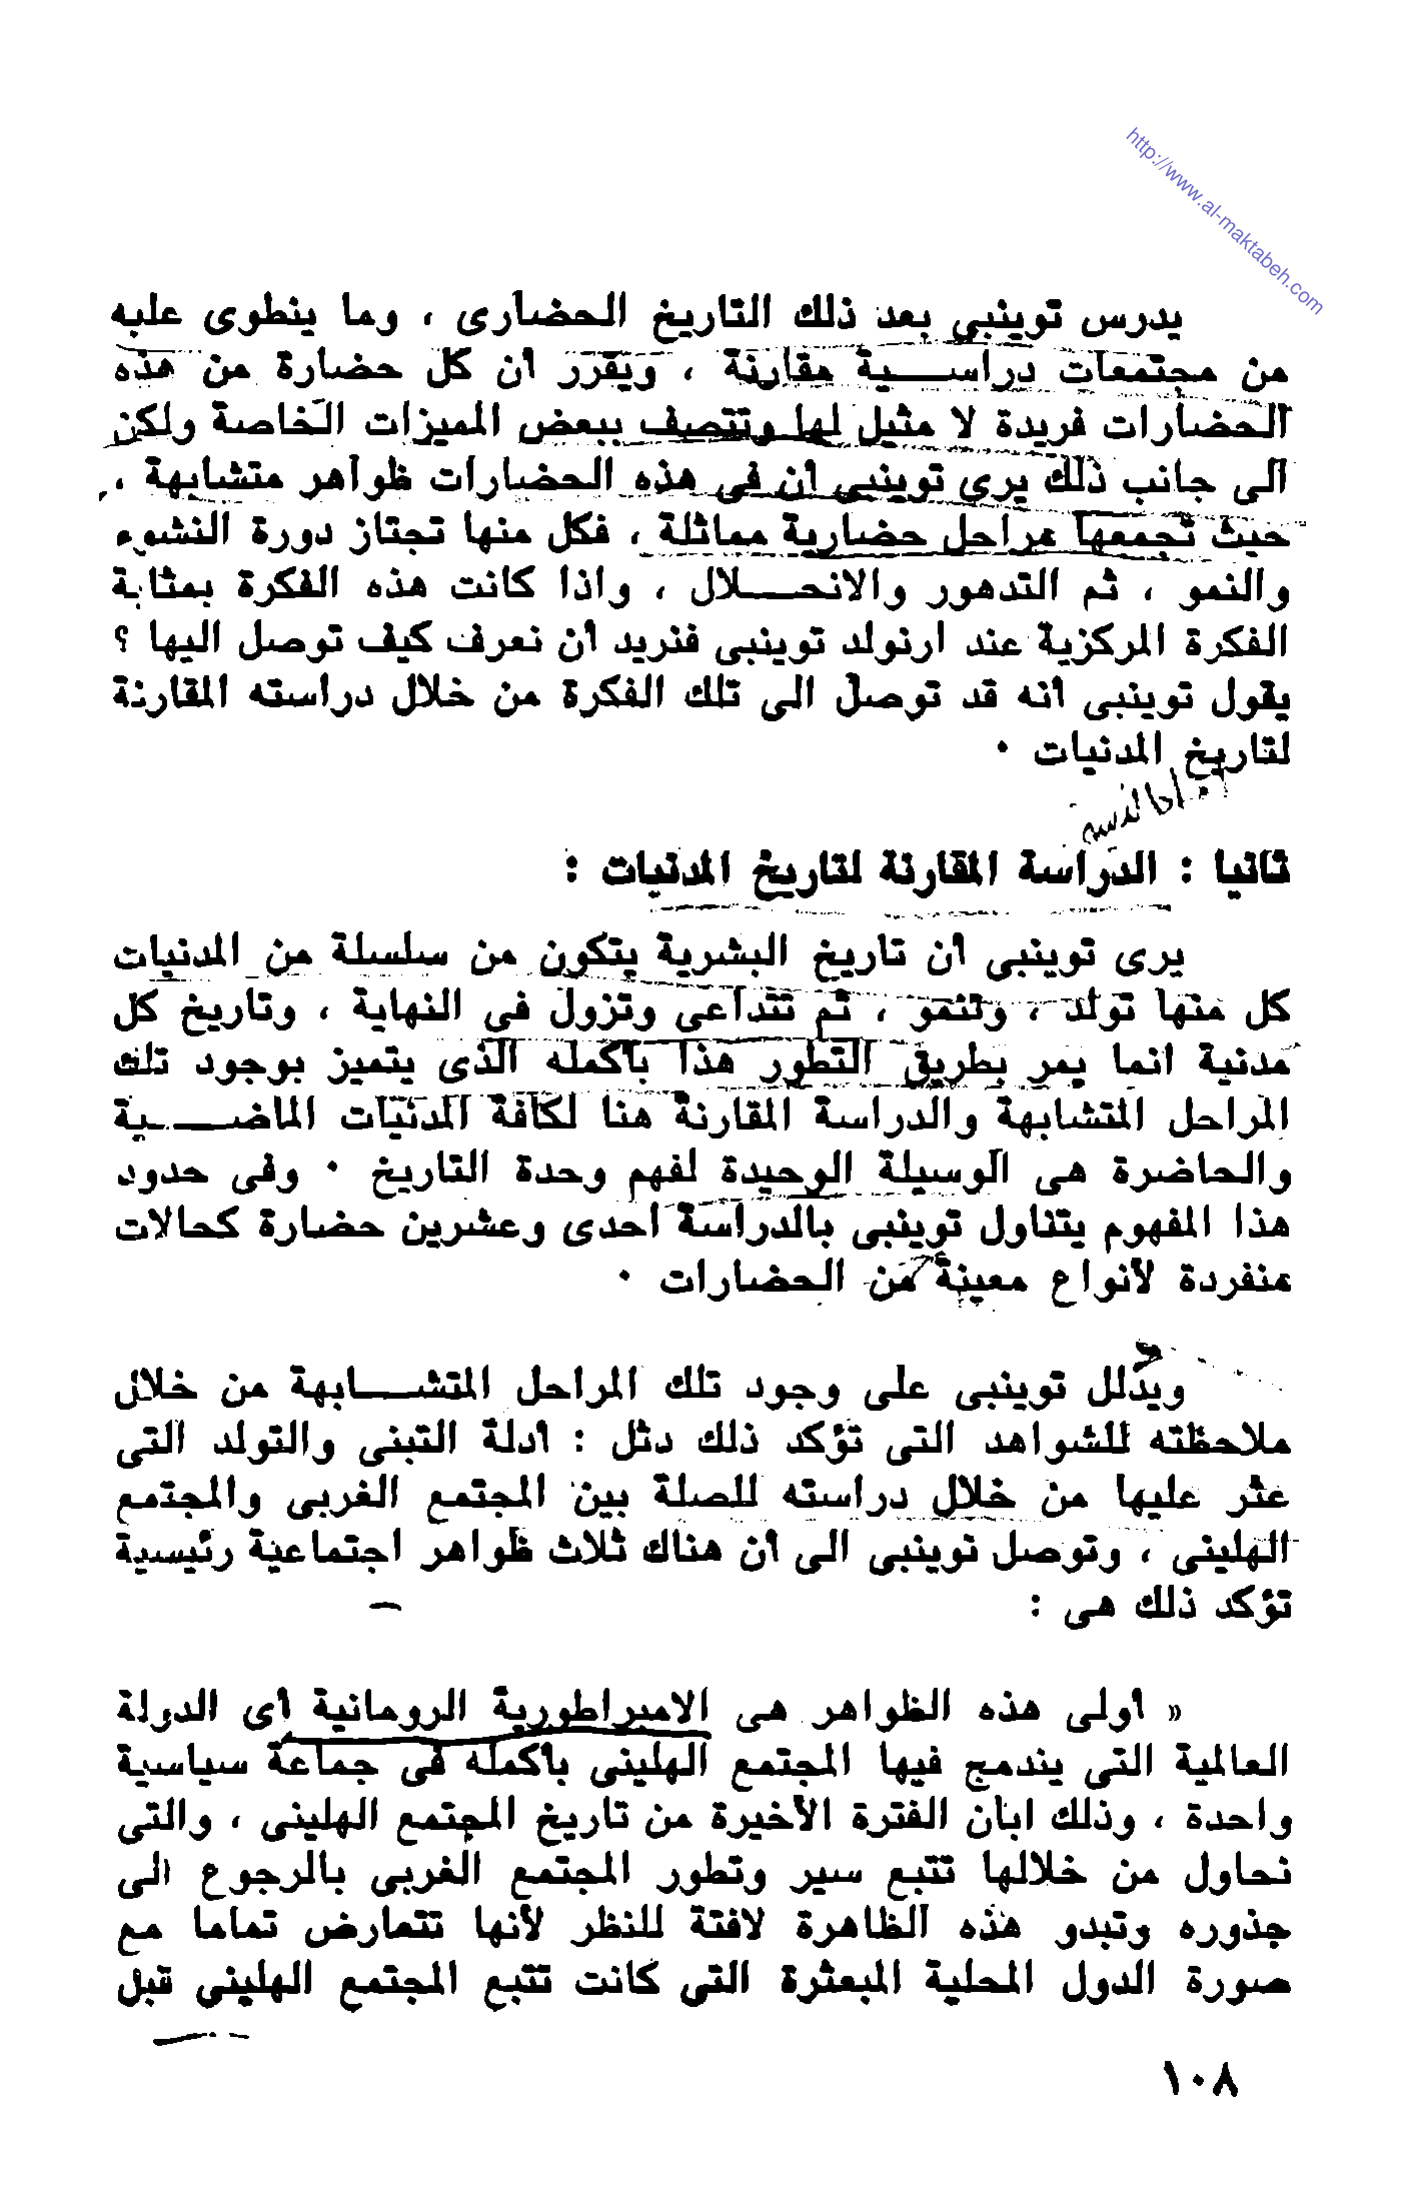 http://www.al-maktabeh.com
يدرس توينبى بعد ذلك التاريخ الحضارى ، وما ينطوى عليه
من مجتمعات دراســـية مقارنة ، ويقرر أن كل حضارة من هذه
الحضارات فريدة لا مثيل لها وتتصف ببعض المميزات الخاصة ولكن
الى جانب ذلك يرى توينبى أن فى هذه الحضارات ظواهر متشابهة ،
حيث تجمعها مراحل حضارية مماثلة ، فكل منها تجتاز دورة النشوء
والنمو ، ثم التدهور والانحـــلال ، واذا كانت هذه الفكرة بمثابة
الفكرة المركزية عند ارنولد توينبى فنريد أن نعرف كيف توصل اليها ؟
يقول توينبى أنه قد توصل الى تلك الفكرة من خلال دراسته المقارنة
لتاريخ المدنيات ٠
ثانيا : الدراسة المقارنة لتاريخ المدنيات :
يرى توينبى أن تاريخ البشرية يتكون من سلسلة من المدنيات
كل منها تولد ، وتنمو ، ثم تتداعى وتزول فى النهاية ، وتاريخ كل
مدنية انما يمر بطريق التطور هذا بأكمله الذى يتميز بوجود تلك
المراحل المتشابهة والدراسة المقارنة هنا لكافة المدنيات الماضـــية
والحاضرة هى الوسيلة الوحيدة لفهم وحدة التاريخ ٠ وفى حدود
هذا المفهوم يتناول توينبى بالدراسة احدى وعشرين حضارة كحالات
منفردة لأنواع معينة من الحضارات ٠
ويدلل توينبى على وجود تلك المراحل المتشـــابهة من خلال
ملاحظته للشواهد التى تؤكد ذلك دثل : أدلة التبنى والتولد التى
عثر عليها من خلال دراسته للصلة بين المجتمع الغربى والمجتمع
الهلينى ، وتوصل توينبى الى أن هناك ثلاث ظواهر اجتماعية رئيسية
تؤكد ذلك هى :
« أولى هذه الظواهر هى الامبراطورية الرومانية أى الدولة
العالمية التى يندمج فيها المجتمع الهلينى بأكمله فى جماعة سياسية
واحدة ، وذلك ابان الفترة الأخيرة من تاريخ المجتمع الهلينى ، والتى
نحاول من خلالها تتبع سير وتطور المجتمع الغربى بالرجوع الى
جذوره وتبدو هذه الظاهرة لافتة للنظر لأنها تتعارض تماما مع
صورة الدول المحلية المبعثرة التى كانت تتبع المجتمع الهلينى قبل
١٠٨